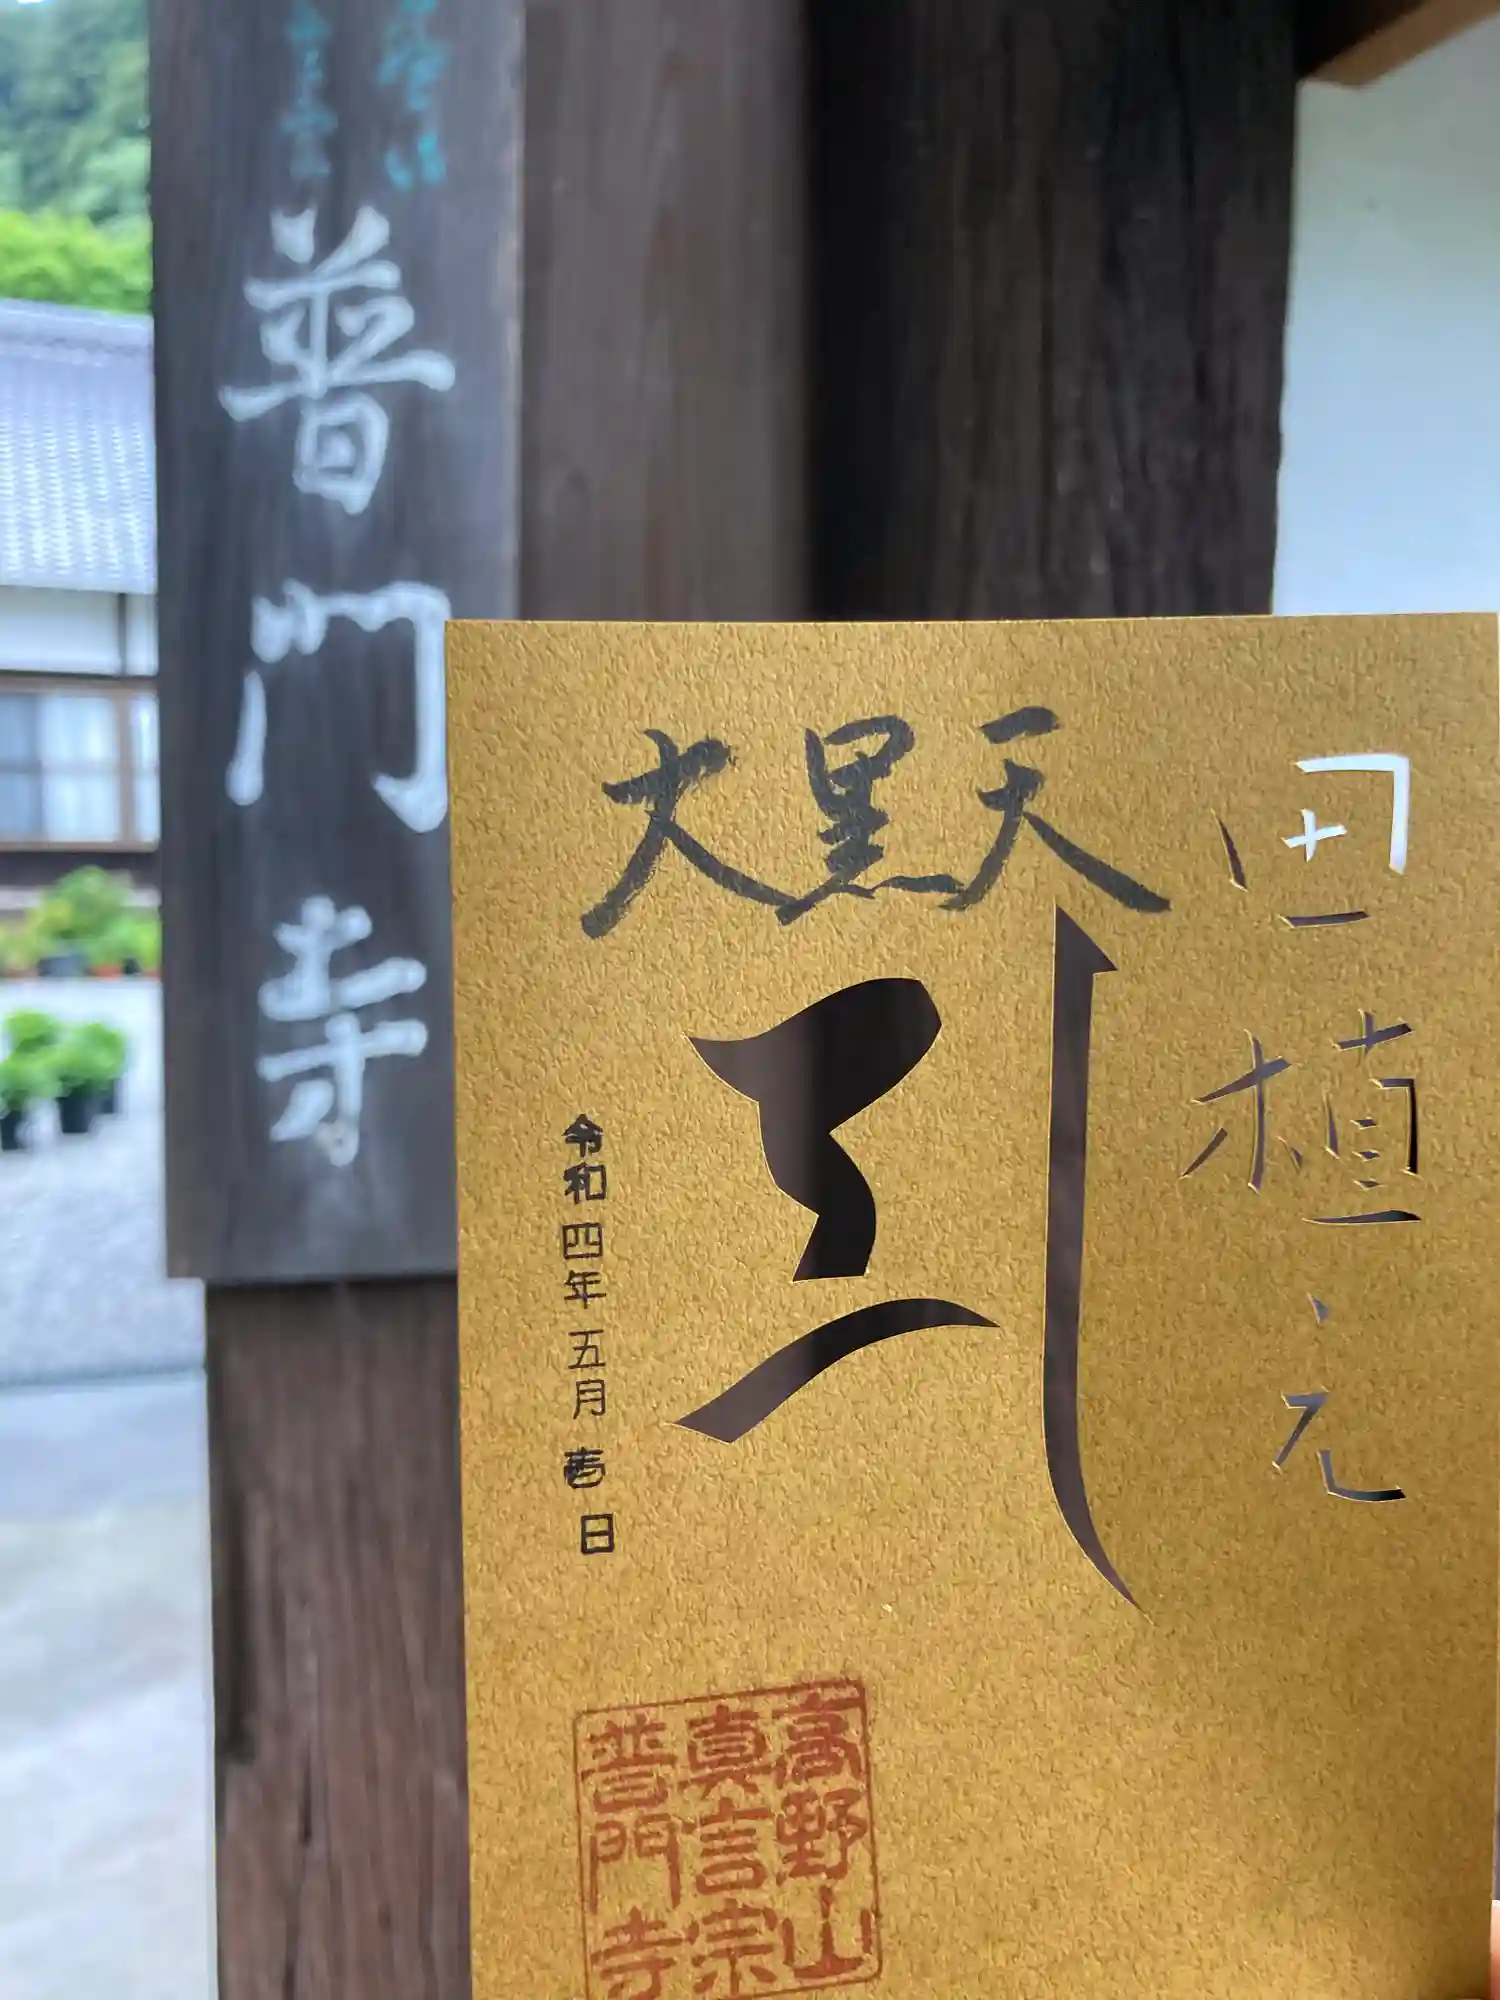 普門寺
大黒天
田植え
令和四年五月 日
高野山
真言宗
普門寺